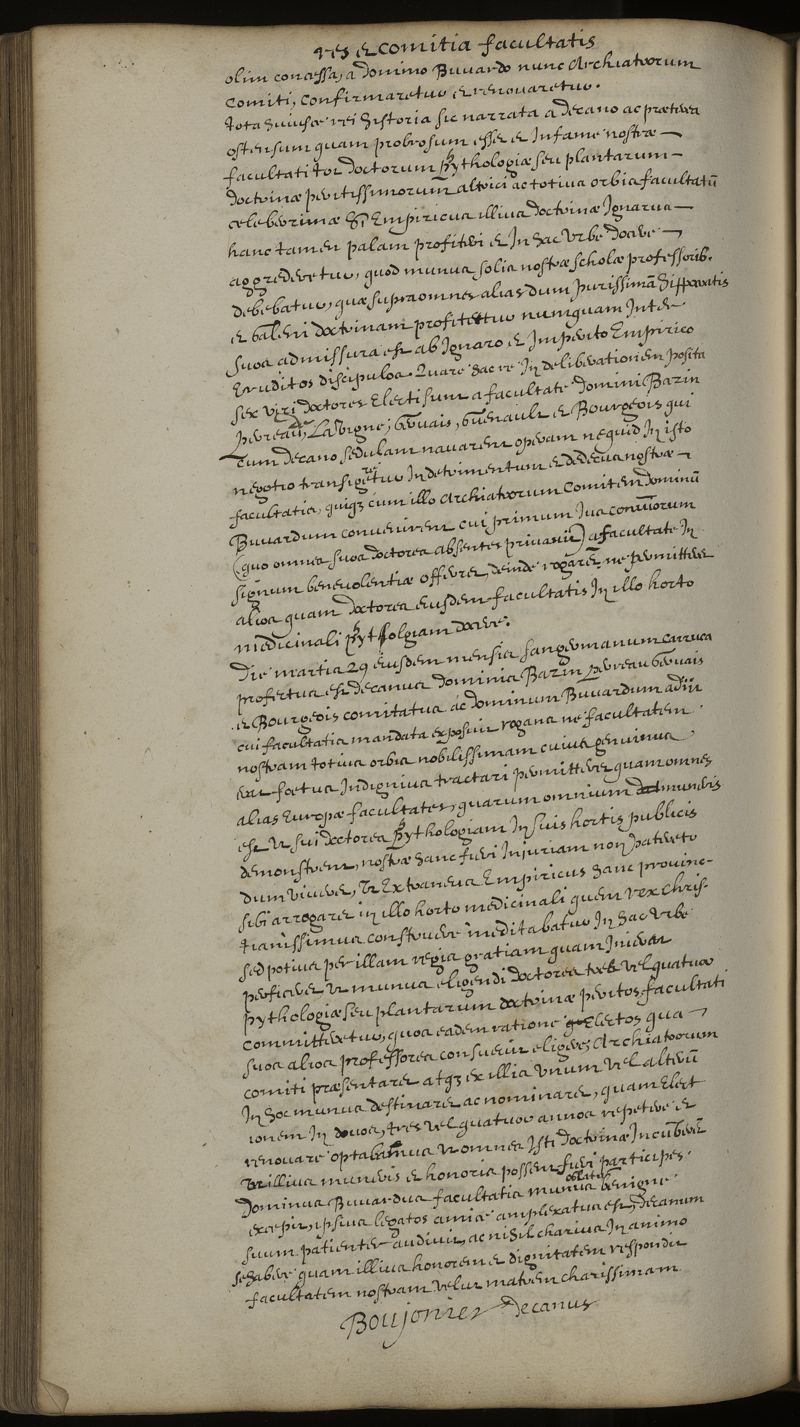 res et comitia facultatis
olim concessa, a domino Buvardo nunc Archiatrorum
comiti, confirmaretur et renovaretur.
tota huiusce rei historia sic narrata a decano ac præterea
ostensum quam probrosum esset et Infame nostræ
facultati tot doctorum phytologiæ seu plantarum
doctrinæ peritissimorum altrici ac totius orbis facultatū
celeberrimæ si Empiricus illius doctrinæ Ignarus
hanc tamen palam profiteri et In hac Urbe docere
aggrederetur, quod munus solis nostræ scholæ professorib.
debebatur, quæ supra omnes alias dum purissimā Hippocratis
et Galeni doctrinam profitetur numquam Inter
suos admissura est ab Ignaro et Imperito Empirico
Eruditos discipulos. Quare hac re In deliberationem posita
sex viri doctores Electi sunt a facultate Domini Bazin
pereau, de La Vigne, Gervais, Guenault et Bourgeois qui
cum decano sedulam navarent operam nequid In isto
negotio transigeretur In detrimentum et dedecus nostræ
facultatis, quique cum illo Archiatrorum Comitem dominū
Buvardum convenirent cui primum Jus convivorum
(quo omnes suos doctores absentes privavit) a facultate In
signum benevolentiæ offerret, deinde rogarēt ne permitteret
alios quam doctores eiusdem facultatis In illo horto
medicinali phytologiam docere.
Die martis 29 eiusdem mensis sangermanum curruca
profectus est decanus dominis Bazin pereau Gervais
et Bourgeois comitatus ac dominum Buvardum adiit
cui facultatis mandata exposuit rogans ne facultatem
nostram totius orbis nobilissimam cuius genuinus
erat foetus Indignius tractari permitteret quam omnes
alias Europæ facultates, quarum omnium muneris
est ut sui doctores phytologiam In suis hortis publicis
demonstrent, nostræ hanc fieri Injuriam non pateretur
dum viveret, ut Extraneus Empiricus hanc provinc-
sibi arrogaret in illo horto medicinali quem rex Chris-
tianissimus construere meditabatur In hac Urbe
sed potius per illam regis gratiam quam Inierat
perficeret ut munus eligendi doctores tres vel quatuor
phytologiæ seu plantarum doctrinæ peritos, facultati
committeretur, quos eadem ratione Electos qua
suos alios professores consuevit eligere, Archiatrorum
comiti præsentaret atque ex illis Unum vel alterū
In hoc munus destinaret ac nominaret, quam Elect
ionem In duos, tres vel quatuor annos repetere et
renovare optabamus ut omnes Isti doctrinæ Incūberēt
ut illius muneris et honoris possent fieri participes.
Dominus Buvardus facultatis munus oblatum benigne
excepit, ipsius legatos amice amplexatus est, decanum
suum patienter audivit, ac nihil charius In animo
se habere quam illius honorem et dignitatem respondit
facultatem nostram velut matrem charissimam
Boujonier decanus